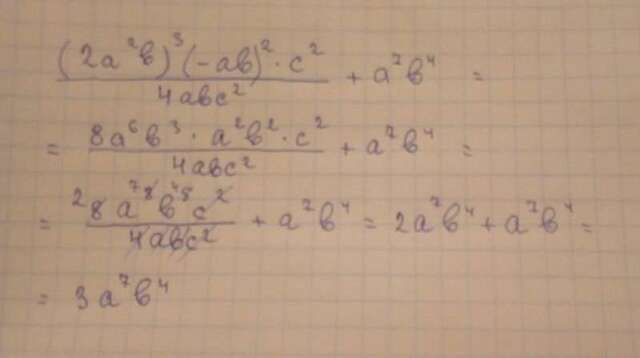 (2a²b)³(-ab)²·c² / 4abc² + a⁷b⁴ =
= 8a⁶b³·a²b²·c² / 4abc² + a⁷b⁴ =
= ²8a⁷⁸b⁴⁵c² / 4abc² + a⁷b⁴ = 2a⁷b⁴ + a⁷b⁴ =
= 3a⁷b⁴